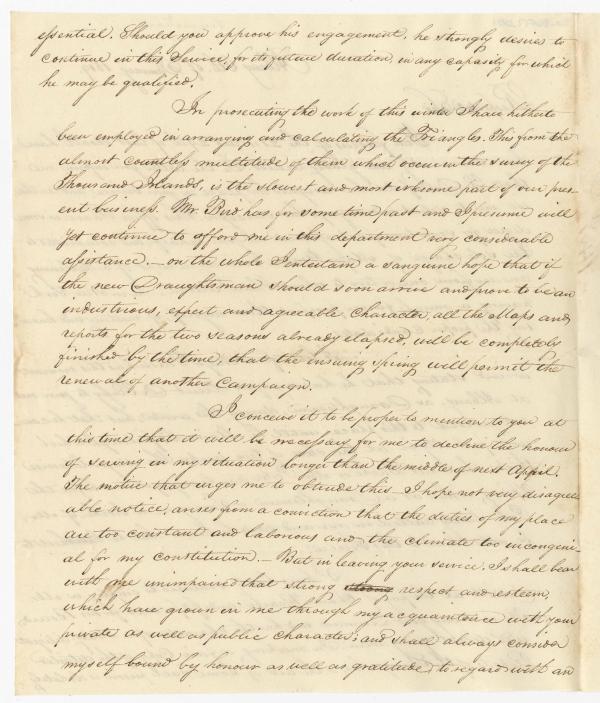 essential. Should you approve his engagement, he strongly desires to
continue in this Service, for its future duration, in any capacity for which
he may be qualified.
In prosecuting the work of this winter I have hitherto
been employed in arranging and calculating the Triangles. This from the
almost countless multitude of them which occur in the survey of the
Thousand Islands, is the slowest and most irksome part of our pres-
ent business. Mr. Bird has for some time past and I presume will
yet continue to afford me in this department very considerable
assistance. — on the whole I entertain a sanguine hope that if
the new Draughtsman should soon arrive and prove to be an
industrious, expert and agreeable Character, all the Maps and
reports for the two seasons already elapsed, will be completely
finished by the time, that the ensuing spring will permit the
renewal of another Campaign.
I conceive it to be proper to mention to you at
this time that it will be necessary for me to decline the honour
of serving in my situation longer than the middle of next April.
The motive that urges me to obtrude this — I hope not very disagree-
able notice, arises from a conviction that the duties of my place
are too constant and laborious and the climate too incongeni-
al for my constitution. — But in leaving your service, I shall bear
with me unimpaired that strong strong respect and esteem,
which have grown in me through my acquaintance with your
private as well as public character; and shall always consider
myself bound by honour as well as gratitude, to regard with an